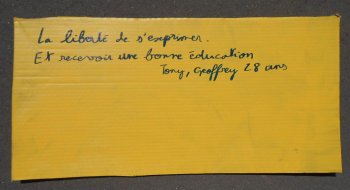 La liberté de s'exprimer.
Et recevoir une bonne éducation
Tony, Geoffrey 28 ans